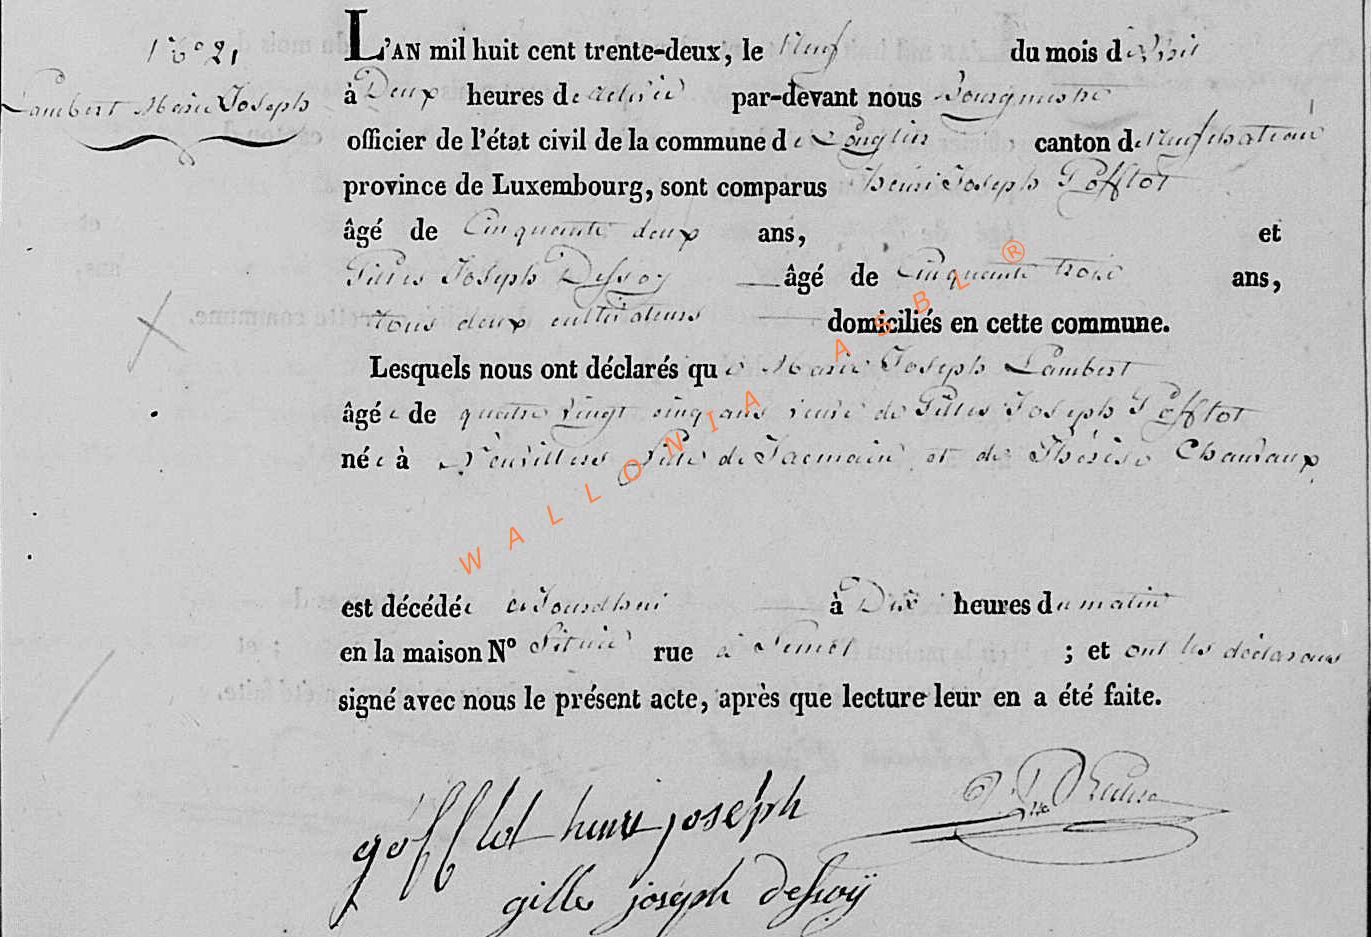 N° 21
Lambert Marie Joseph
L'AN mil huit cent trente-deux, le Neuf du mois d'avril
à Deux heures de relevée par-devant nous Bourgmestre
officier de l'état civil de la commune de Longlier canton de Neufchateau
province de Luxembourg, sont comparus henri Joseph Gofflot
âgé de Cinquante deux ans, et
Gilles Joseph Dessoy âgé de Cinquante trois ans,
tous deux cultivateurs domiciliés en cette commune.
Lesquels nous ont déclarés que Marie Joseph Lambert
âgée de quatre vingt cinq ans veuve de Gilles Joseph Gofflot
née à fille de et de Thérèse Chauvaux
est décédée ce Jourdhui à Dix heures du matin
en la maison N° Située rue à ; et ont les déclarans
signé avec nous le présent acte, après que lecture leur en a été faite.
gofflot henri joseph
gille joseph dessoÿ
WALLONIA ASBL ®